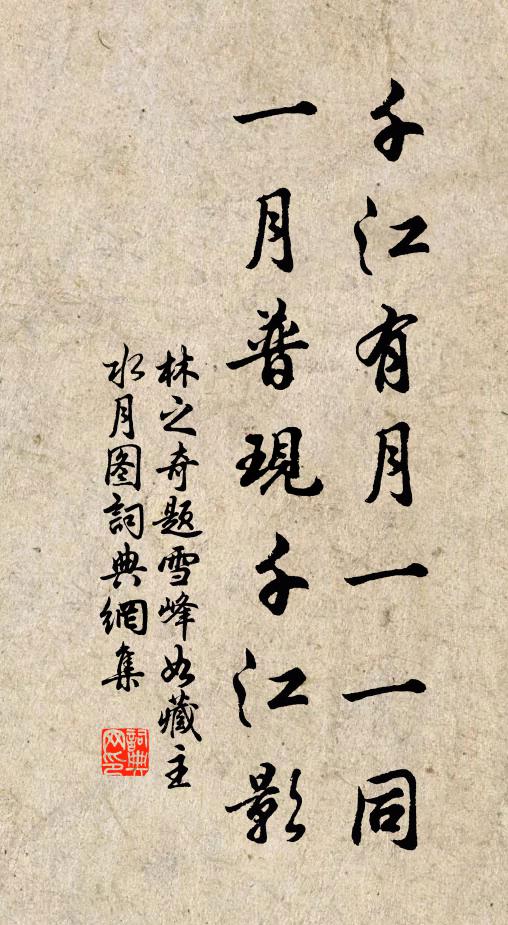 千江有月一一同
一月普現千江影
林之奇题雪峰如藏主
水月图詞典網集
詞典
网印